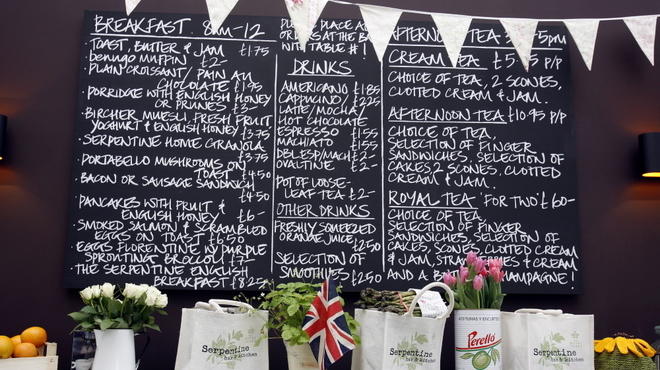 BREAKFAST 8AM-12
· TOAST, BUTTER & JAM £1.75
· BENUGO MUFFIN £2-
· PLAIN CROISSANT/ PAIN AU
CHOCOLATE £1.95
· PORRIDGE WITH ENGLISH HONEY
OR PRUNES £3-
· BIRCHER MUESLI, FRESH FRUIT
YOGHURT & ENGLISH HONEY £3.75
· SERPENTINE HOME GRANOLA
£3.75
· PORTABELLO MUSHROOMS ON
TOAST £4.50
· BACON OR SAUSAGE SANDWICH
£4.50
· PANCAKES WITH FRUIT &
ENGLISH HONEY £6-
· SMOKED SALMON & SCRAMBLED
EGGS ON TOAST £6.50
· EGGS FLORENTINE W/ PURPLE
SPROUTING BROCCOLI £7-
· THE SERPENTINE ENGLISH
BREAKFAST £8.25
PLACE ALL
ORDERS AT THE BAR
WITH TABLE #!
DRINKS
AMERICANO £1.85
CAPPUCINO/ £2.25
LATTE/MOCHA/
HOT CHOCOLATE
ESPRESSO £1.55
MACHIATO £1.55
DBL ESP/MACH £2-
OVALTINE £2-
POT OF LOOSE-
LEAF TEA £2-
OTHER DRINKS
FRESHLY SQUEEZED
ORANGE JUICE
£2.50
SELECTION OF
SMOOTHIES £2.50
AFTERNOON TEA 5PM
CREAM TEA £5.75 P/P
CHOICE OF TEA, 2 SCONES,
CLOTTED CREAM & JAM.
AFTERNOON TEA £10.95 P/P
CHOICE OF TEA,
SELECTION OF FINGER
SANDWICHES, SELECTION OF
CAKES, 2 SCONES, CLOTTED
CREAM & JAM.
ROYAL TEA 'FOR TWO' £60-
CHOICE OF TEA,
SELECTION OF FINGER
SANDWICHES, SELECTION OF
CAKES, SCONES, CLOTTED CREAM
& JAM, STRAWBERRIES & CREAM
AND A CHAMPAGNE!
Serpentine
bar & kitchen
Serpentine
bar & kitchen
Perelló
Serpentine
bar & kitchen